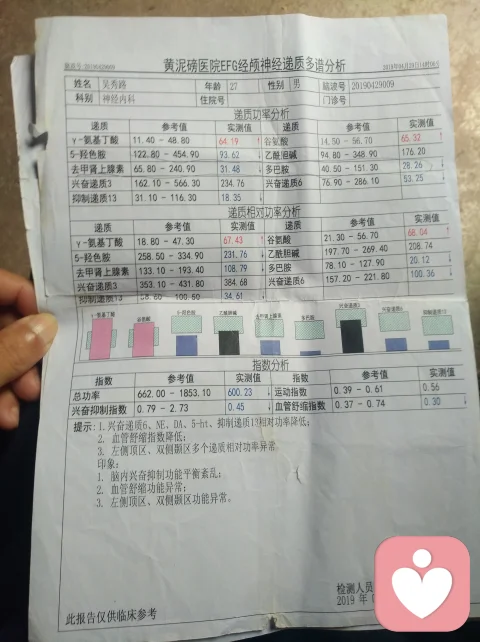 脑波号:20190429009
黄泥磅医院EFG经颅神经递质多谱分析
2019年04月29日14时06分
姓名 吴秀路 年龄 27 性别 男 脑波号 20190429009
科别 神经内科 住院号 门诊号
递质功率分析
递质 参考值 实测值 递质 参考值 实测值
γ-氨基丁酸 11.40 - 48.80 64.19 ↑ 谷氨酸 14.50 - 56.70 65.32 ↑
5-羟色胺 122.80 - 454.90 93.62 ↓ 乙酰胆碱 94.80 - 348.90 176.20
去甲肾上腺素 65.80 - 240.90 31.48 ↓ 多巴胺 40.50 - 151.30 28.26 ↓
兴奋递质3 162.10 - 566.30 234.76 兴奋递质6 76.90 - 286.10 53.25 ↓
抑制递质13 31.10 - 116.30 18.35 ↓
递质相对功率分析
递质 参考值 实测值 递质 参考值 实测值
γ-氨基丁酸 18.80 - 47.30 67.43 ↑ 谷氨酸 21.30 - 56.70 68.04 ↑
5-羟色胺 258.50 - 334.90 231.76 ↓ 乙酰胆碱 197.70 - 269.40 208.74
去甲肾上腺素 133.10 - 193.40 108.79 ↓ 多巴胺 78.10 - 127.90 20.12 ↓
兴奋递质3 353.10 - 431.80 384.68 兴奋递质6 157.20 - 221.80 100.36 ↓
抑制递质13 58.60 - 100.60 34.61 ↓
γ-氨基丁酸 谷氨酸 5-羟色胺 乙酰胆碱 去甲肾上腺素 多巴胺 兴奋递质3 兴奋递质6 抑制递质13
指数分析
指数 参考值 实测值 指数 参考值 实测值
总功率 662.00 - 1853.10 600.23 ↓ 运动指数 0.39 - 0.61 0.56
兴奋抑制指数 0.79 - 2.73 0.45 ↓ 血管舒缩指数 0.37 - 0.74 0.30 ↓
提示:1.兴奋递质6、NE、DA、5-ht、抑制递质13相对功率降低;
2. 血管舒缩指数降低;
3. 左侧顶区、双侧颞区多个递质相对功率异常。
印象:
1. 脑内兴奋抑制功能平衡紊乱;
2. 血管舒缩功能异常;
3. 左侧顶区、双侧颞区功能异常。
检测人员
2019 年
此报告仅供临床参考